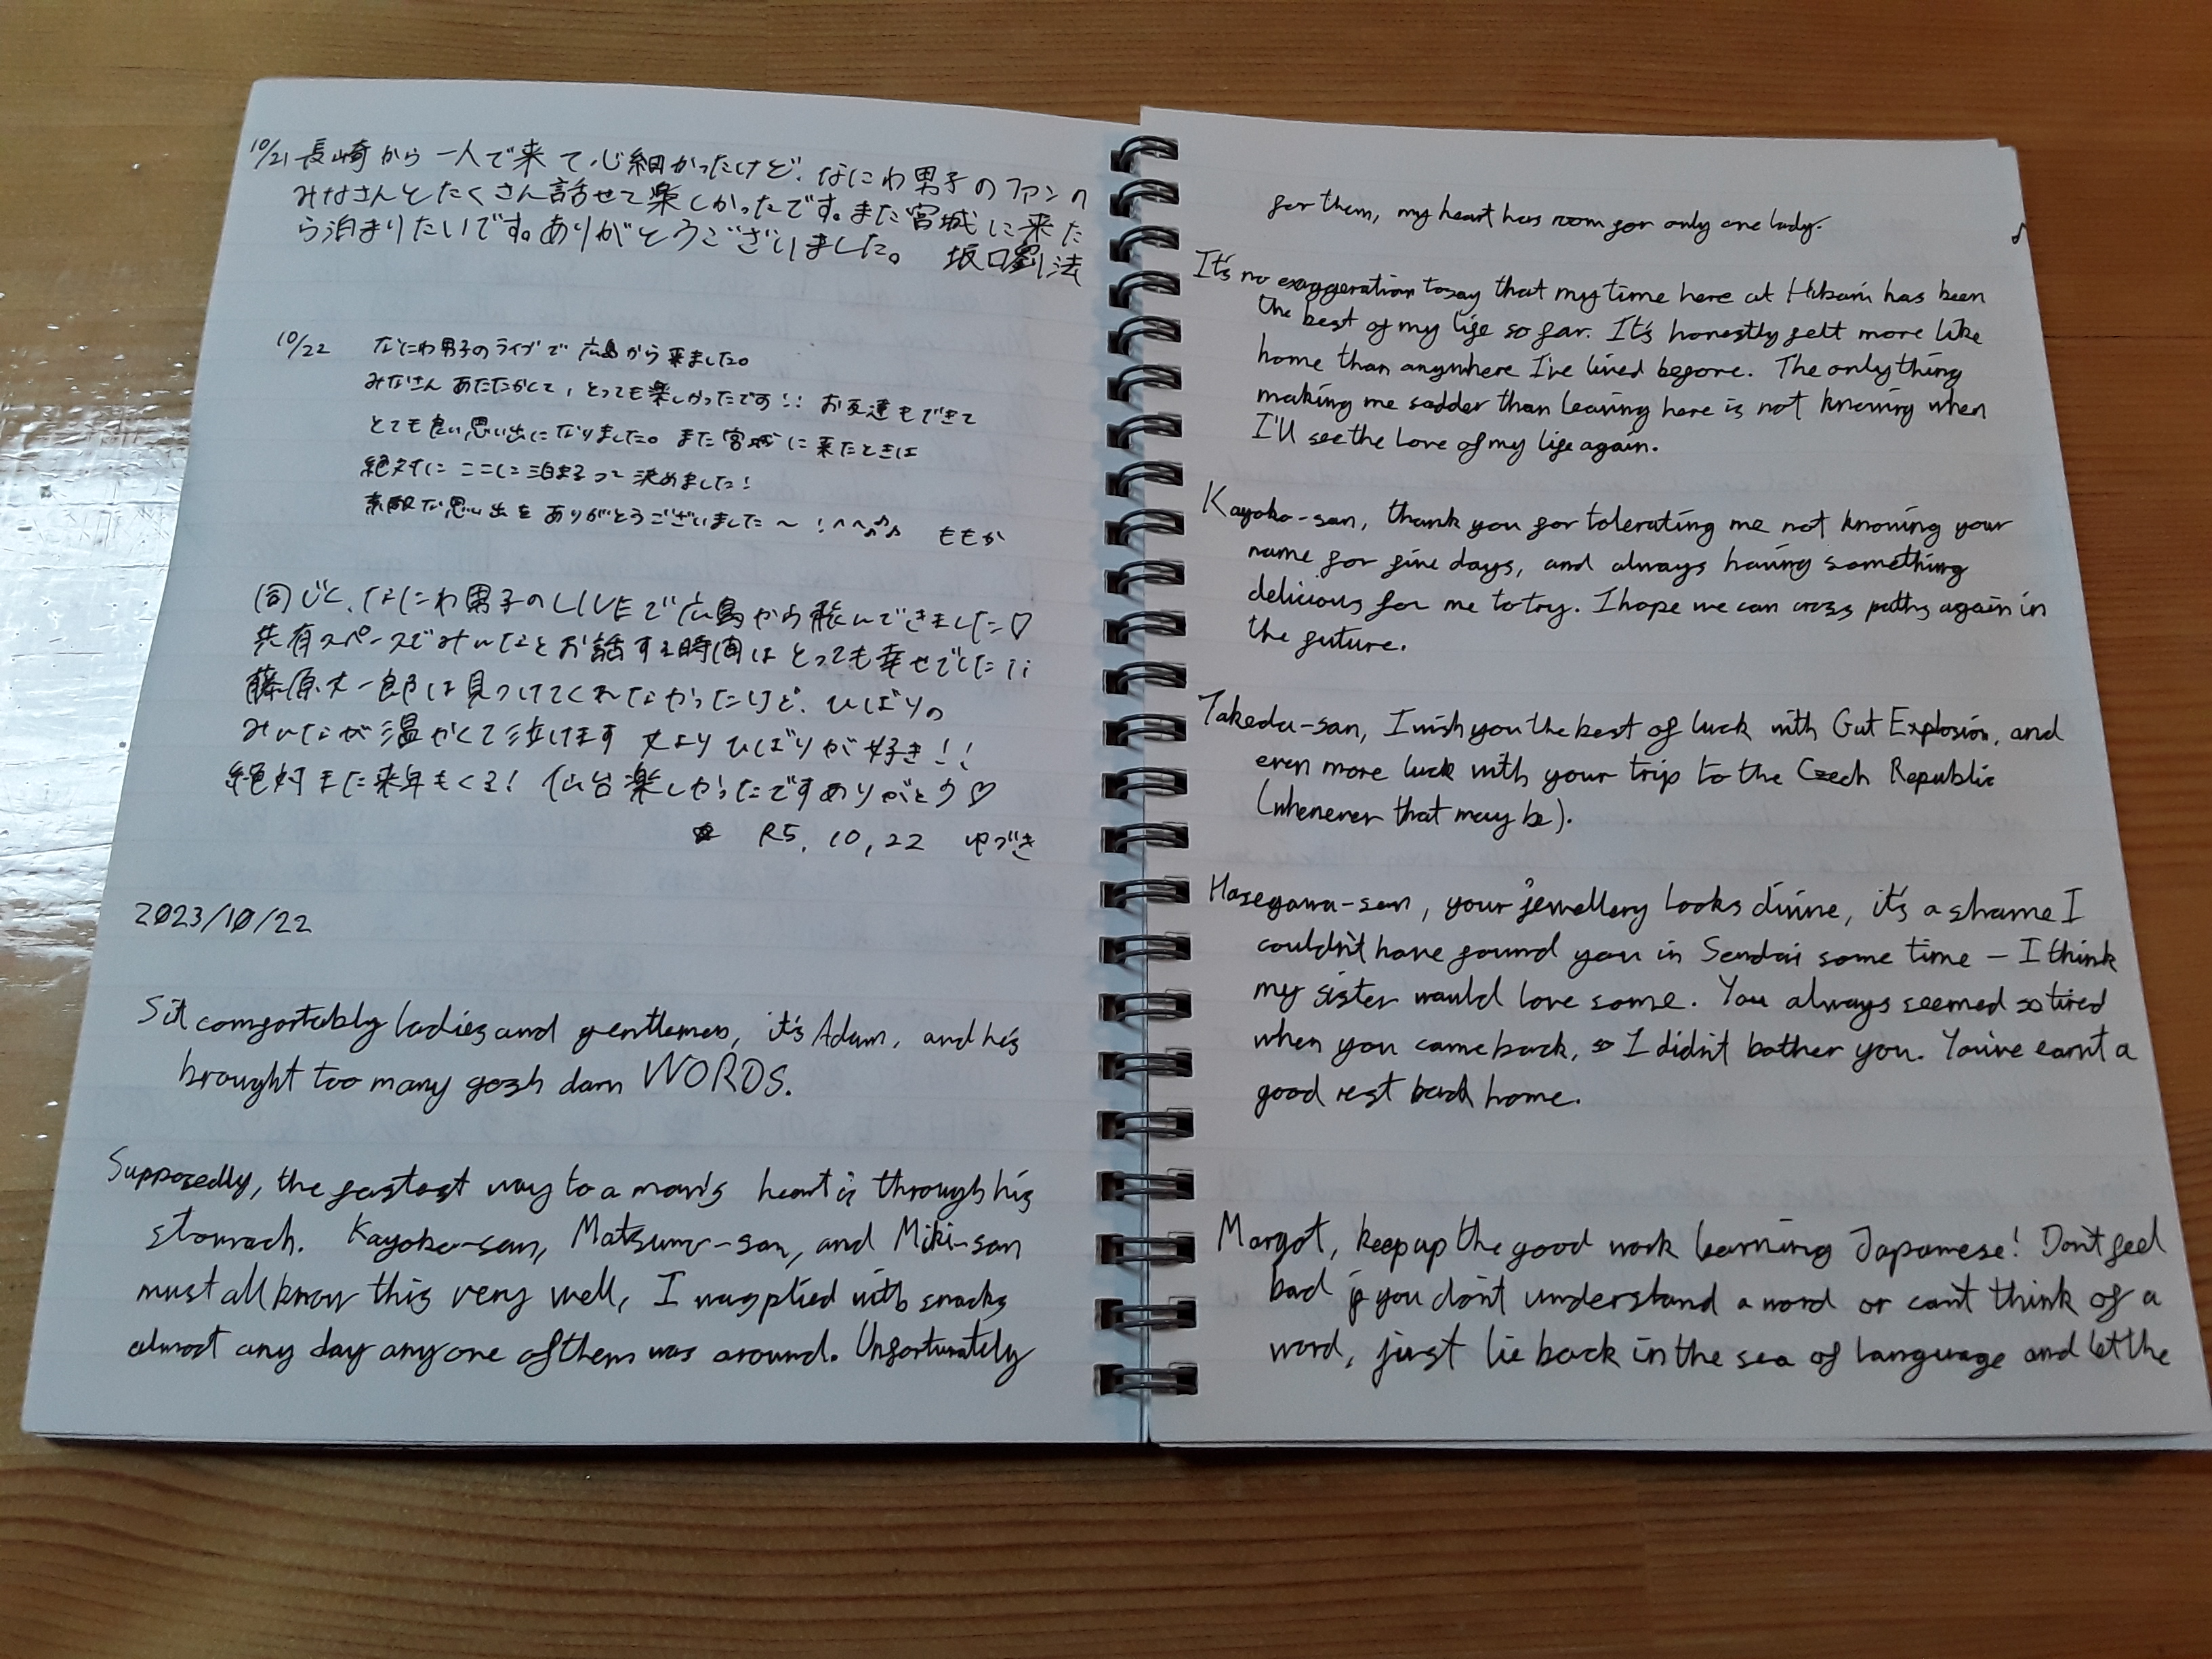 10/21 長崎から一人で来て心細かったけど、なにわ男子のファンの
みなさんとたくさん話せて楽しかったです。また宮城に来た
ら泊まりたいです。ありがとうございました。 坂口
10/22 なにわ男子のライブで広島から来ました。
みなさんあたたかくて、とっても楽しかったです!! お友達もできて
とても良い思い出になりました。また宮城に来たときは
絶対に ここに泊まるって決めました!
素敵な思い出をありがとうございました〜!^^♪♪ ももか
同じく、なにわ男子のLIVEで広島から飛んできました♡
共有スペースでみんなとお話する時間はとっても幸せでした!!
藤原丈一郎は見つけてくれなかったけど、ひばりの
みんなが温かくて泣けます 丈よりひばりが好き!!
絶対また来年もくる! 仙台楽しかったですありがとう♡
R5,10,22 ゆづき
2023/10/22
Sit comfortably ladies and gentlemen, it's Adam, and he's
brought too many gosh darn WORDS.
Supposedly, the fastest way to a man's heart is through his
stomach. Kayoko-san, Matsuno-san, and Miki-san
must all know this very well, I was plied with snacks
almost any day anyone of them was around. Unfortunately
for them, my heart has room for only one lady.
It's no exaggeration to say that my time here at Hibari has been
the best of my life so far. It's honestly felt more like
home than anywhere I've lived before. The only thing
making me sadder than leaving here is not knowing when
I'll see the love of my life again.
Kayoko-san, thank you for tolerating me not knowing your
name for five days, and always having something
delicious for me to try. I hope we can cross paths again in
the future.
Takeda-san, I wish you the best of luck with Gut Explosion, and
even more luck with your trip to the Czech Republic
(whenever that may be).
Hasegawa-san, your jewellery looks divine, it's a shame I
couldn't have found you in Sendai some time – I think
my sister would love some. You always seemed so tired
when you came back, so I didn't bother you. You've earnt a
good rest back home.
Margot, keep up the good work learning Japanese! Don't feel
bad if you don't understand a word or can't think of a
word, just lie back in the sea of language and let the